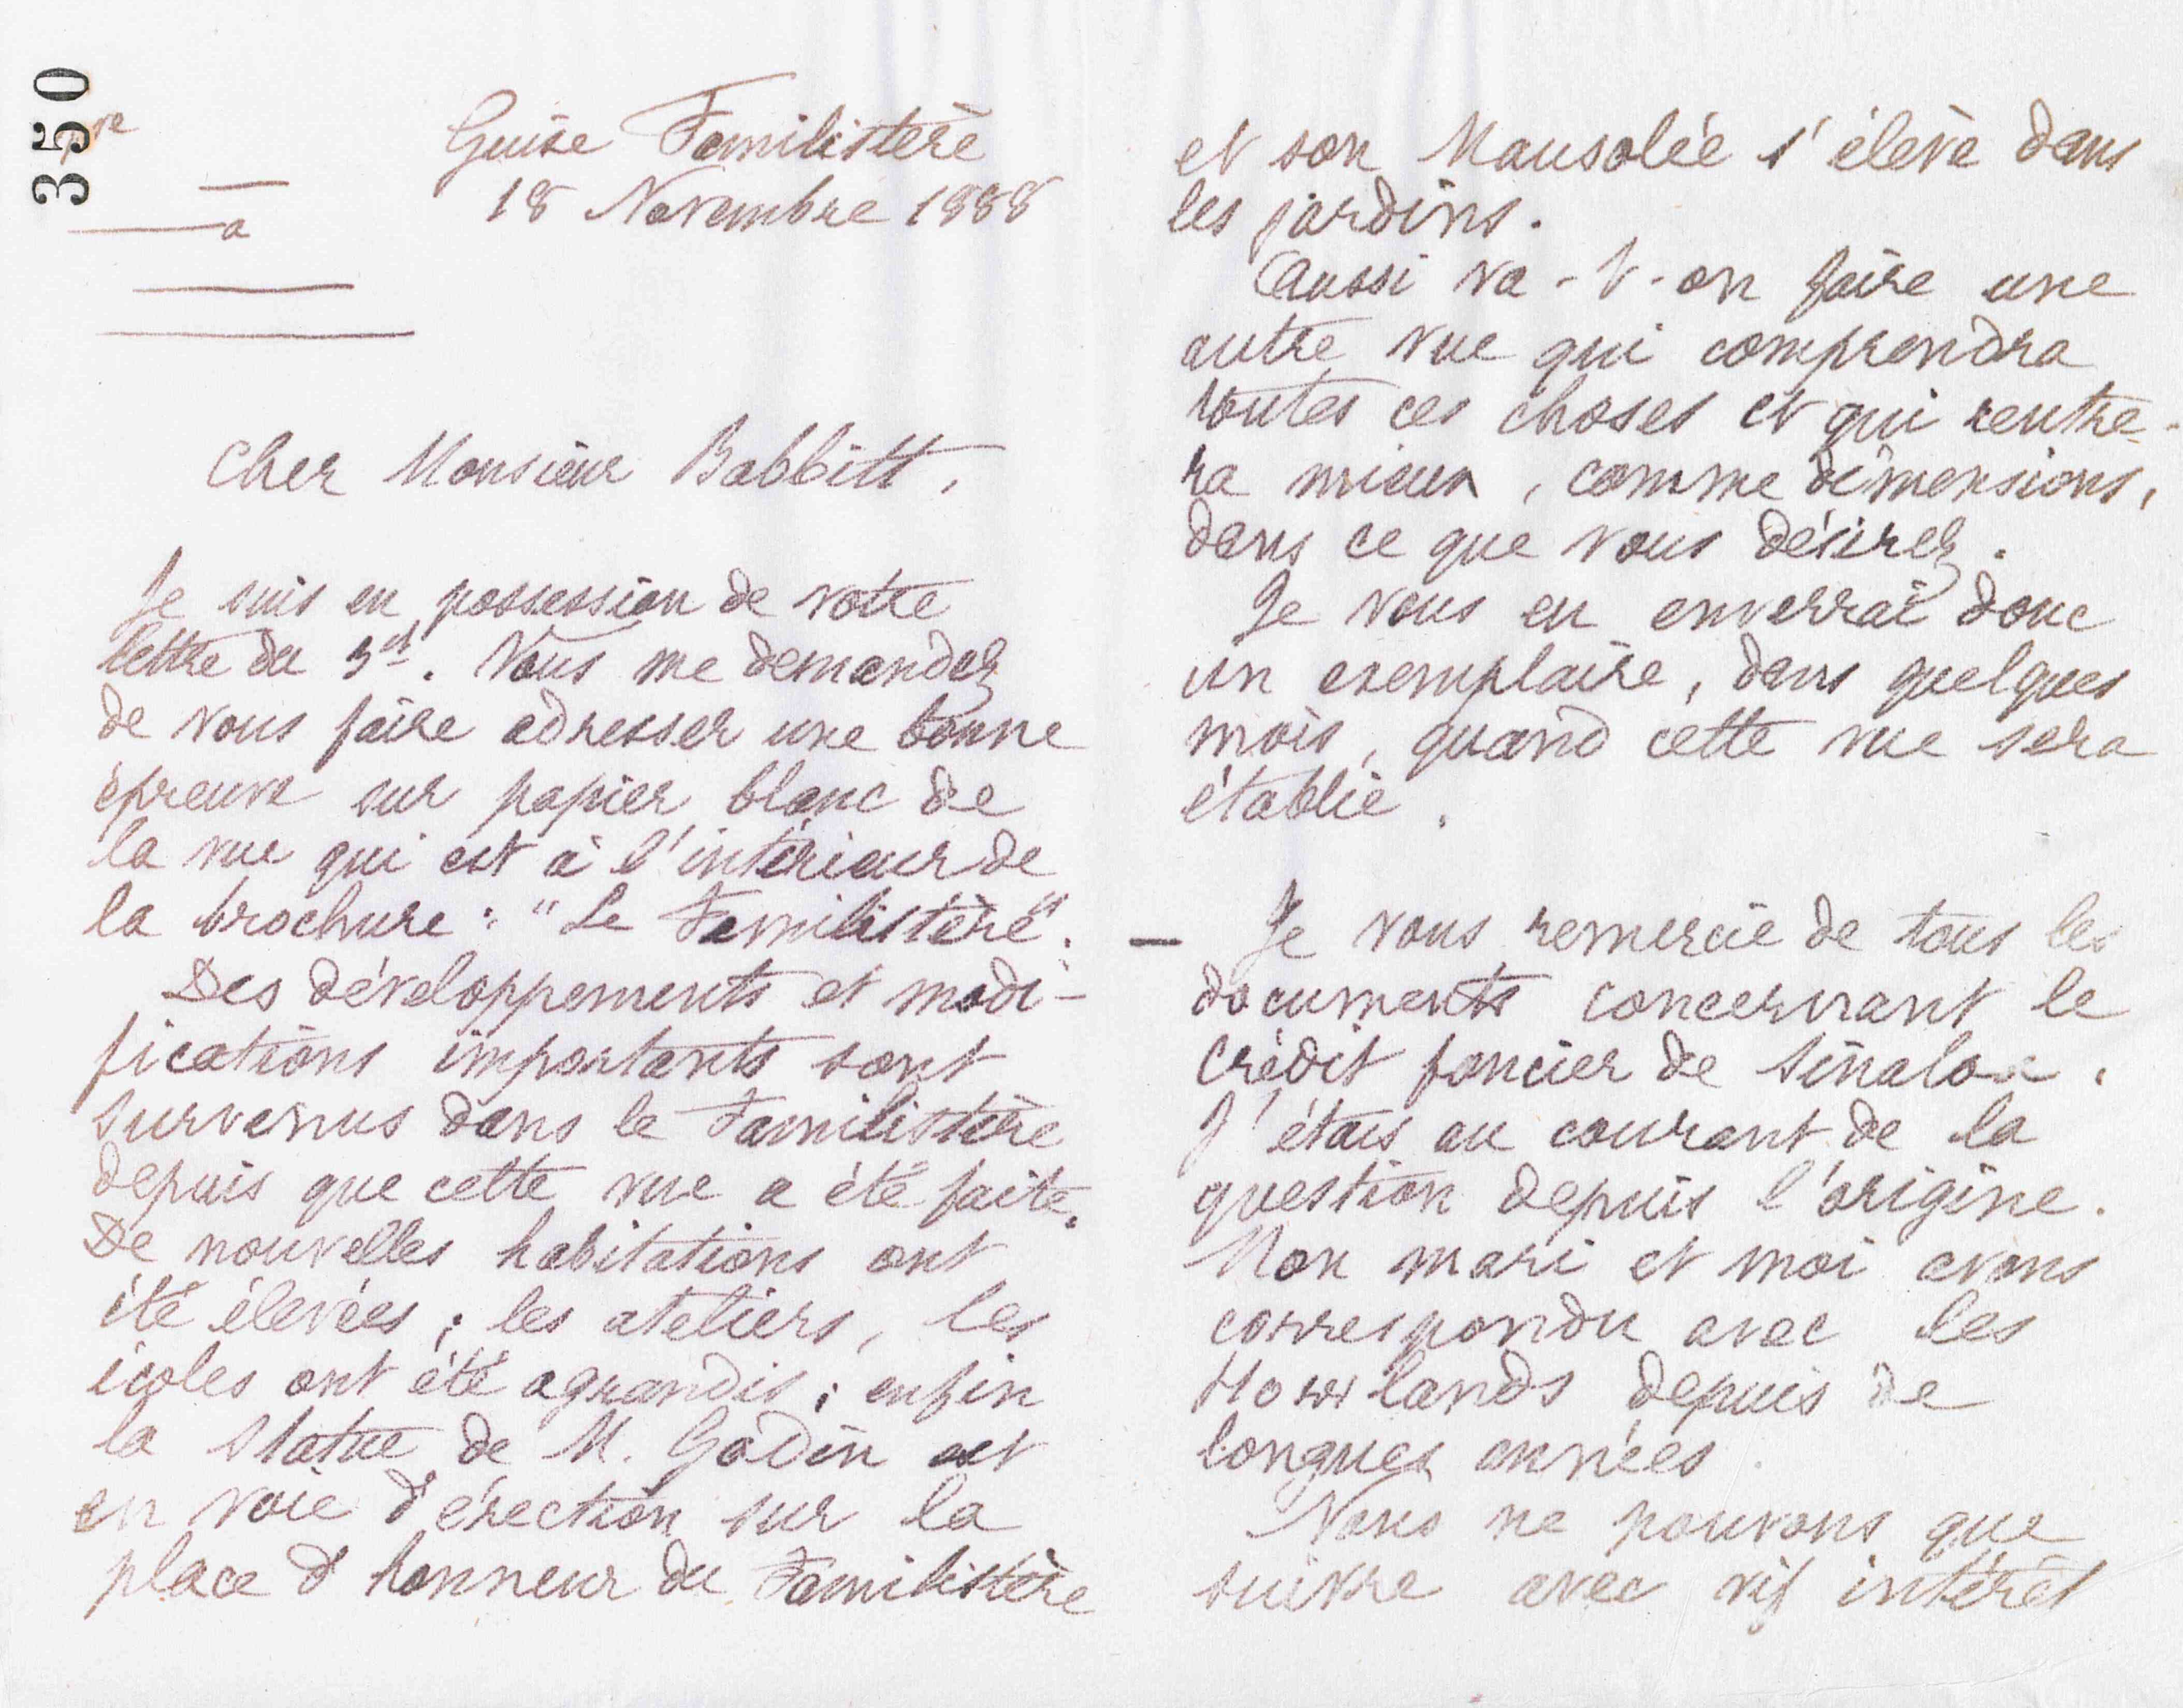 350
Guise Familistère
18 Novembre 1888
a
Cher Monsieur Babbitt,
Je suis en possession de votre
lettre du 3 ct. Vous me demandez
de vous faire adresser une bonne
épreuve sur papier blanc de
la vue qui est à l'intérieur de
la brochure : "Le Familistère".
Des développements et modi-
fications importants sont
survenus dans le Familistère
depuis que cette vue a été faite.
De nouvelles habitations ont
été élevées ; les ateliers, les
écoles ont été agrandis ; enfin
la statue de M. Godin est
en voie d'érection sur la
place d'honneur du Familistère
et son Mausolée s'élève dans
les jardins.
Aussi va-t-on faire une
autre vue qui comprendra
toutes ces choses et qui rentre-
ra mieux, comme dimensions,
dans ce que vous désirez.
Je vous en enverrai donc
un exemplaire, dans quelques
mois, quand cette vue sera
établie.
— Je vous remercie de tous les
documents concernant le
Crédit foncier de Sinaloa.
J'étais au courant de la
question depuis l'origine.
Mon mari et moi avons
correspondu avec les
Howlands depuis de
longues années.
Nous ne pouvons que
suivre avec vif intérêt